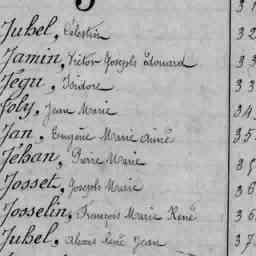 Juhel, Célestin 32
Jamin, Victor Joseph Edouard 33
Jegu, Isidore 33
Joly, Jean Marie 34
Jan, Eumgène Marie Aimé 35
Jéhan, Pierre Marie 35
Josset, Joseph Marie 36
Josselin, François Marie René 36
Juhel, Alexis René Jean 37